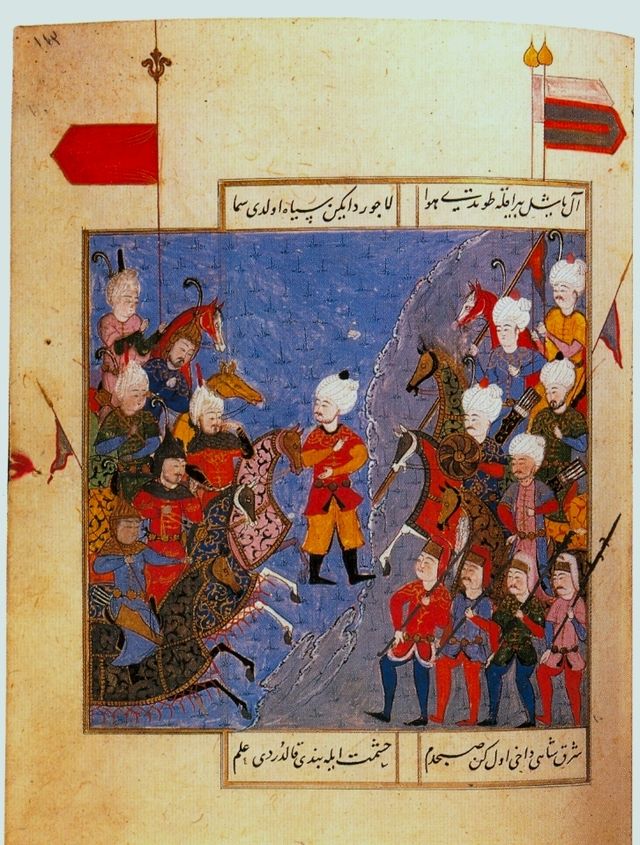 آل یاشل بیراقله طوندی هوا
لاجورد ایکن سیاه اولدی سما
شرق شاهی داخی اول کن صبحدم
حشمت ایله بندی قالدردی علم